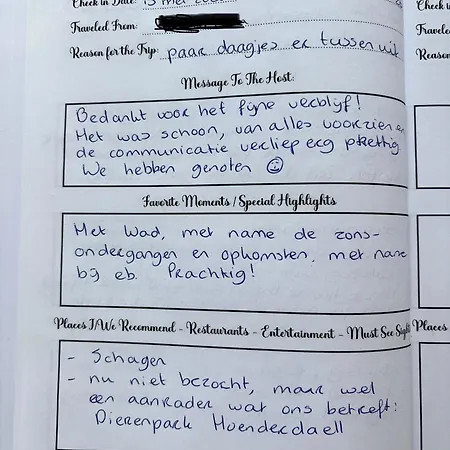 Check in Date: 13 mei
Traveled From:
Reason for the Trip: paar daagjes er tussen uit
Message To The Host:
Bedankt voor het fijne verblijf!
Het was schoon, van alles voorzien en
de communicatie verliep erg prettig.
We hebben genoten ☺
Favorite Moments / Special Highlights
Het Wad, met name de zons-
ondergangen en opkomsten, met name
bij eb. Prachtig!
Places I/We Recommend - Restaurants - Entertainment - Must See
- Schagen
- nu niet bezocht, maar wel
een aanrader wat ons betreft:
Dierenpark Hoenderdaell
Check in
Traveled
Reason
Places